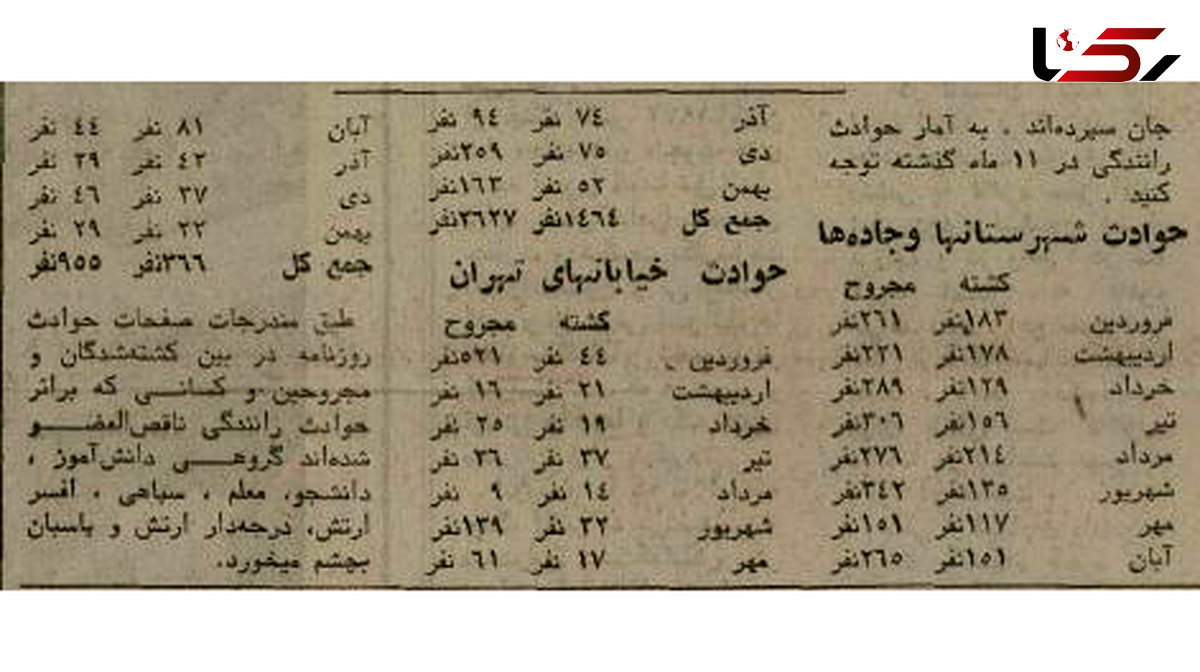 رکنا
جان سپرده‌اند . به آمار حوادث
رانندگی در ۱۱ ماه گذشته توجه
کنید .
حوادث شهرستانها وجاده‌ها
کشته مجروح
فروردین ۱۸۳نفر ۲۶۱نفر
اردیبهشت ۱۷۸نفر ۲۲۱نفر
خرداد ۱۲۹نفر ۲۸۹نفر
تیر ۱۵۶نفر ۳۰۶نفر
مرداد ۲۱۴نفر ۲۷۶نفر
شهریور ۱۳۵نفر ۳۴۲نفر
مهر ۱۱۷نفر ۱۵۱نفر
آبان ۱۵۱نفر ۲۶۵نفر
آذر ۷۴ نفر ۹۴ نفر
دی ۷۵ نفر ۲۵۹نفر
بهمن ۵۲ نفر ۱۶۳نفر
جمع کل ۱۴۶۴نفر ۲۶۲۷نفر
حوادث خیابانهای تهران
کشته مجروح
فروردین ۴۴ نفر ۵۲۱نفر
اردیبهشت ۲۱ نفر ۱۶ نفر
خرداد ۱۹ نفر ۲۵ نفر
تیر ۳۷ نفر ۳۶ نفر
مرداد ۱۴ نفر ۹ نفر
شهریور ۳۲ نفر ۱۳۹نفر
مهر ۱۷ نفر ۶۱ نفر
آبان ۸۱ نفر ۴۴ نفر
آذر ۴۲ نفر ۲۹ نفر
دی ۳۷ نفر ۴۶ نفر
بهمن ۲۲ نفر ۲۹ نفر
جمع کل ۳۶۶نفر ۹۵۵نفر
طبق مندرجات صفحات حوادث
روزنامه در بین کشته‌شدگان و
مجروحین و کسانی که براثر
حوادث رانندگی ناقص‌العضو
شده‌اند گروهی دانش‌آموز ،
دانشجو، معلم ، سپاهی ، افسر
ارتش، درجه‌دار ارتش و پاسبان
بچشم میخورد.